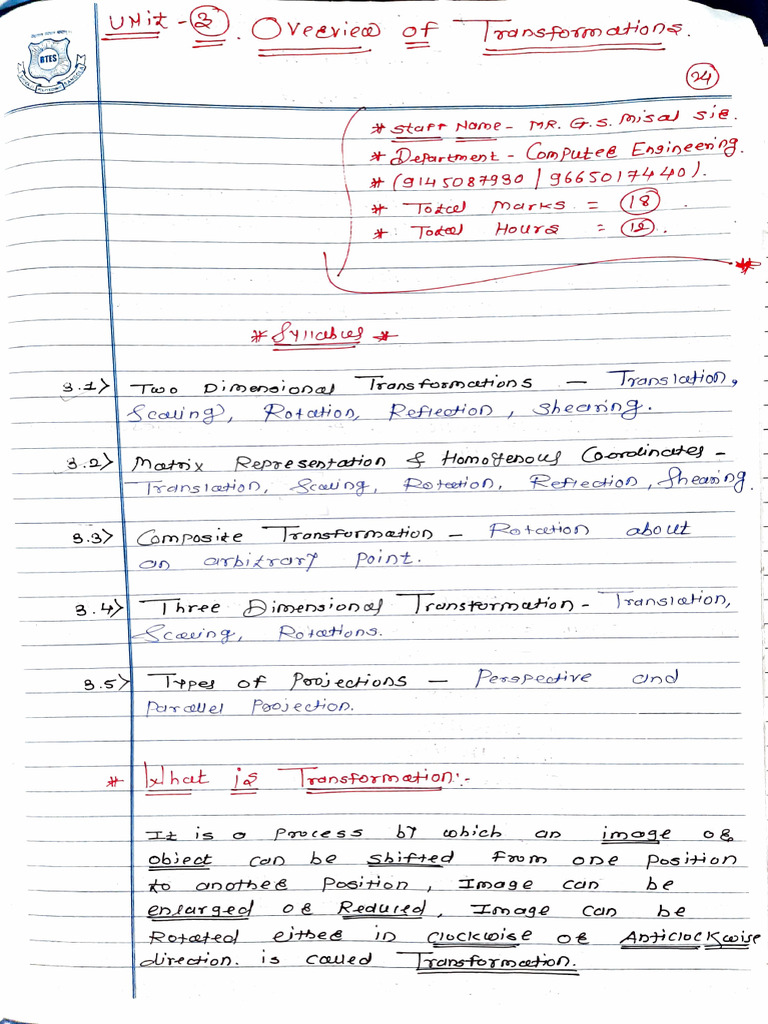 UNIT - 3. Overview of Transformations.
BTES
24
* Staff Name - MR. G. S. Misal sir.
* Department - Computer Engineering.
* (9145087930 | 9665017440).
* Total Marks = 18
* Total Hours = 12.
* Syllabus *
3.1> Two Dimensional Transformations - Translation,
Scaling, Rotation, Reflection, Shearing.
3.2> Matrix Representation & Homogenous Coordinates -
Translation, Scaling, Rotation, Reflection, Shearing
3.3> Composite Transformation - Rotation about
an arbitrary point.
3.4> Three Dimensional Transformation - Translation,
Scaling, Rotations.
3.5> Types of Projections - Perspective and
Parallel Projection.
* What is Transformation:-
It is a process by which an image or
object can be shifted from one position
to another position, Image can be
enlarged or Reduced, Image can be
Rotated either in clockwise or Anticlockwise
direction. is called Transformation.